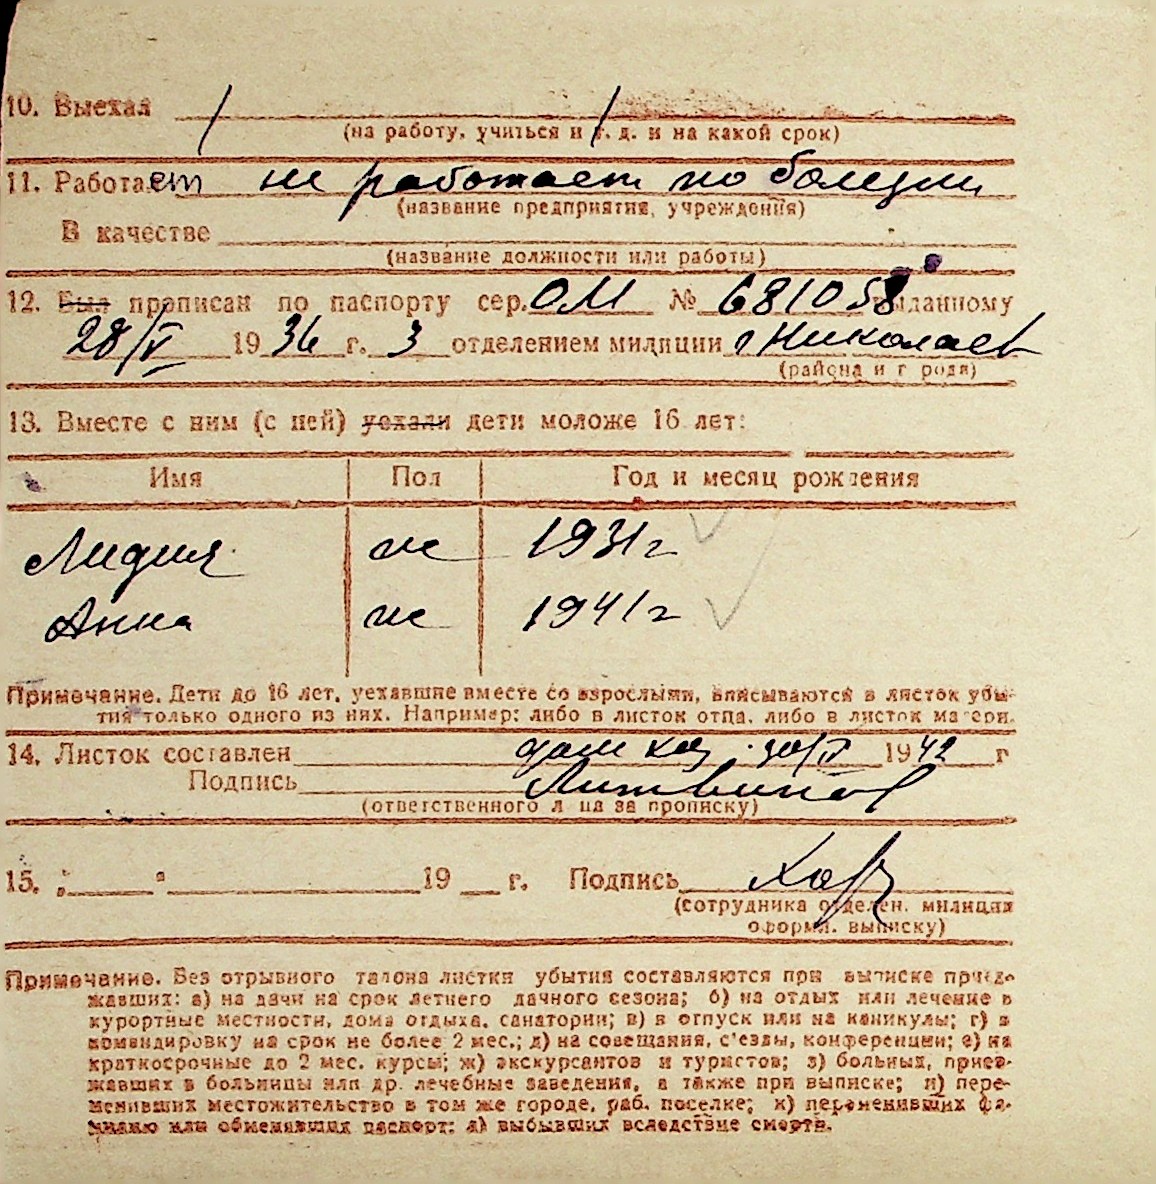 10. Выехал / /
(на работу, учиться и т. д. и на какой срок)
11. Работает не работает по болезни
(название предприятия, учреждения)
В качестве
(название должности или работы)
12. Был прописан по паспорту сер. ОМ № 681058 выданному
28/V 1936 г. 3 отделением милиции г Николаев
(района и города)
13. Вместе с ним (с ней) уехали дети моложе 16 лет:
Имя Пол Год и месяц рождения
Лидия ж 1931 г
Анна ж 1941 г
Примечание. Дети до 16 лет, уехавшие вместе со взрослыми, вписываются в листок убы-
тия только одного из них. Например: либо в листок отца, либо в листок матери.
14. Листок составлен 1942 г
Подпись Литвинов
(ответственного лица за прописку)
15. " " 19 г. Подпись
(сотрудника отделен. милиции
оформл. выписку)
Примечание. Без отрывного талона листки убытия составляются при выписке приез-
жавших: а) на дачи на срок летнего дачного сезона; б) на отдых или лечение в
курортные местности, дома отдыха, санатории; в) в отпуск или на каникулы; г) в
командировку на срок не более 2 мес.; д) на совещания, с'езды, конференции; е) на
краткосрочные до 2 мес. курсы; ж) экскурсантов и туристов; з) больных, приез-
жавших в больницы или др. лечебные заведения, а также при выписке; и) пере-
менивших местожительство в том же городе, раб. поселке; к) переменивших фа-
милию или обменявших паспорт; л) выбывших вследствие смерти.